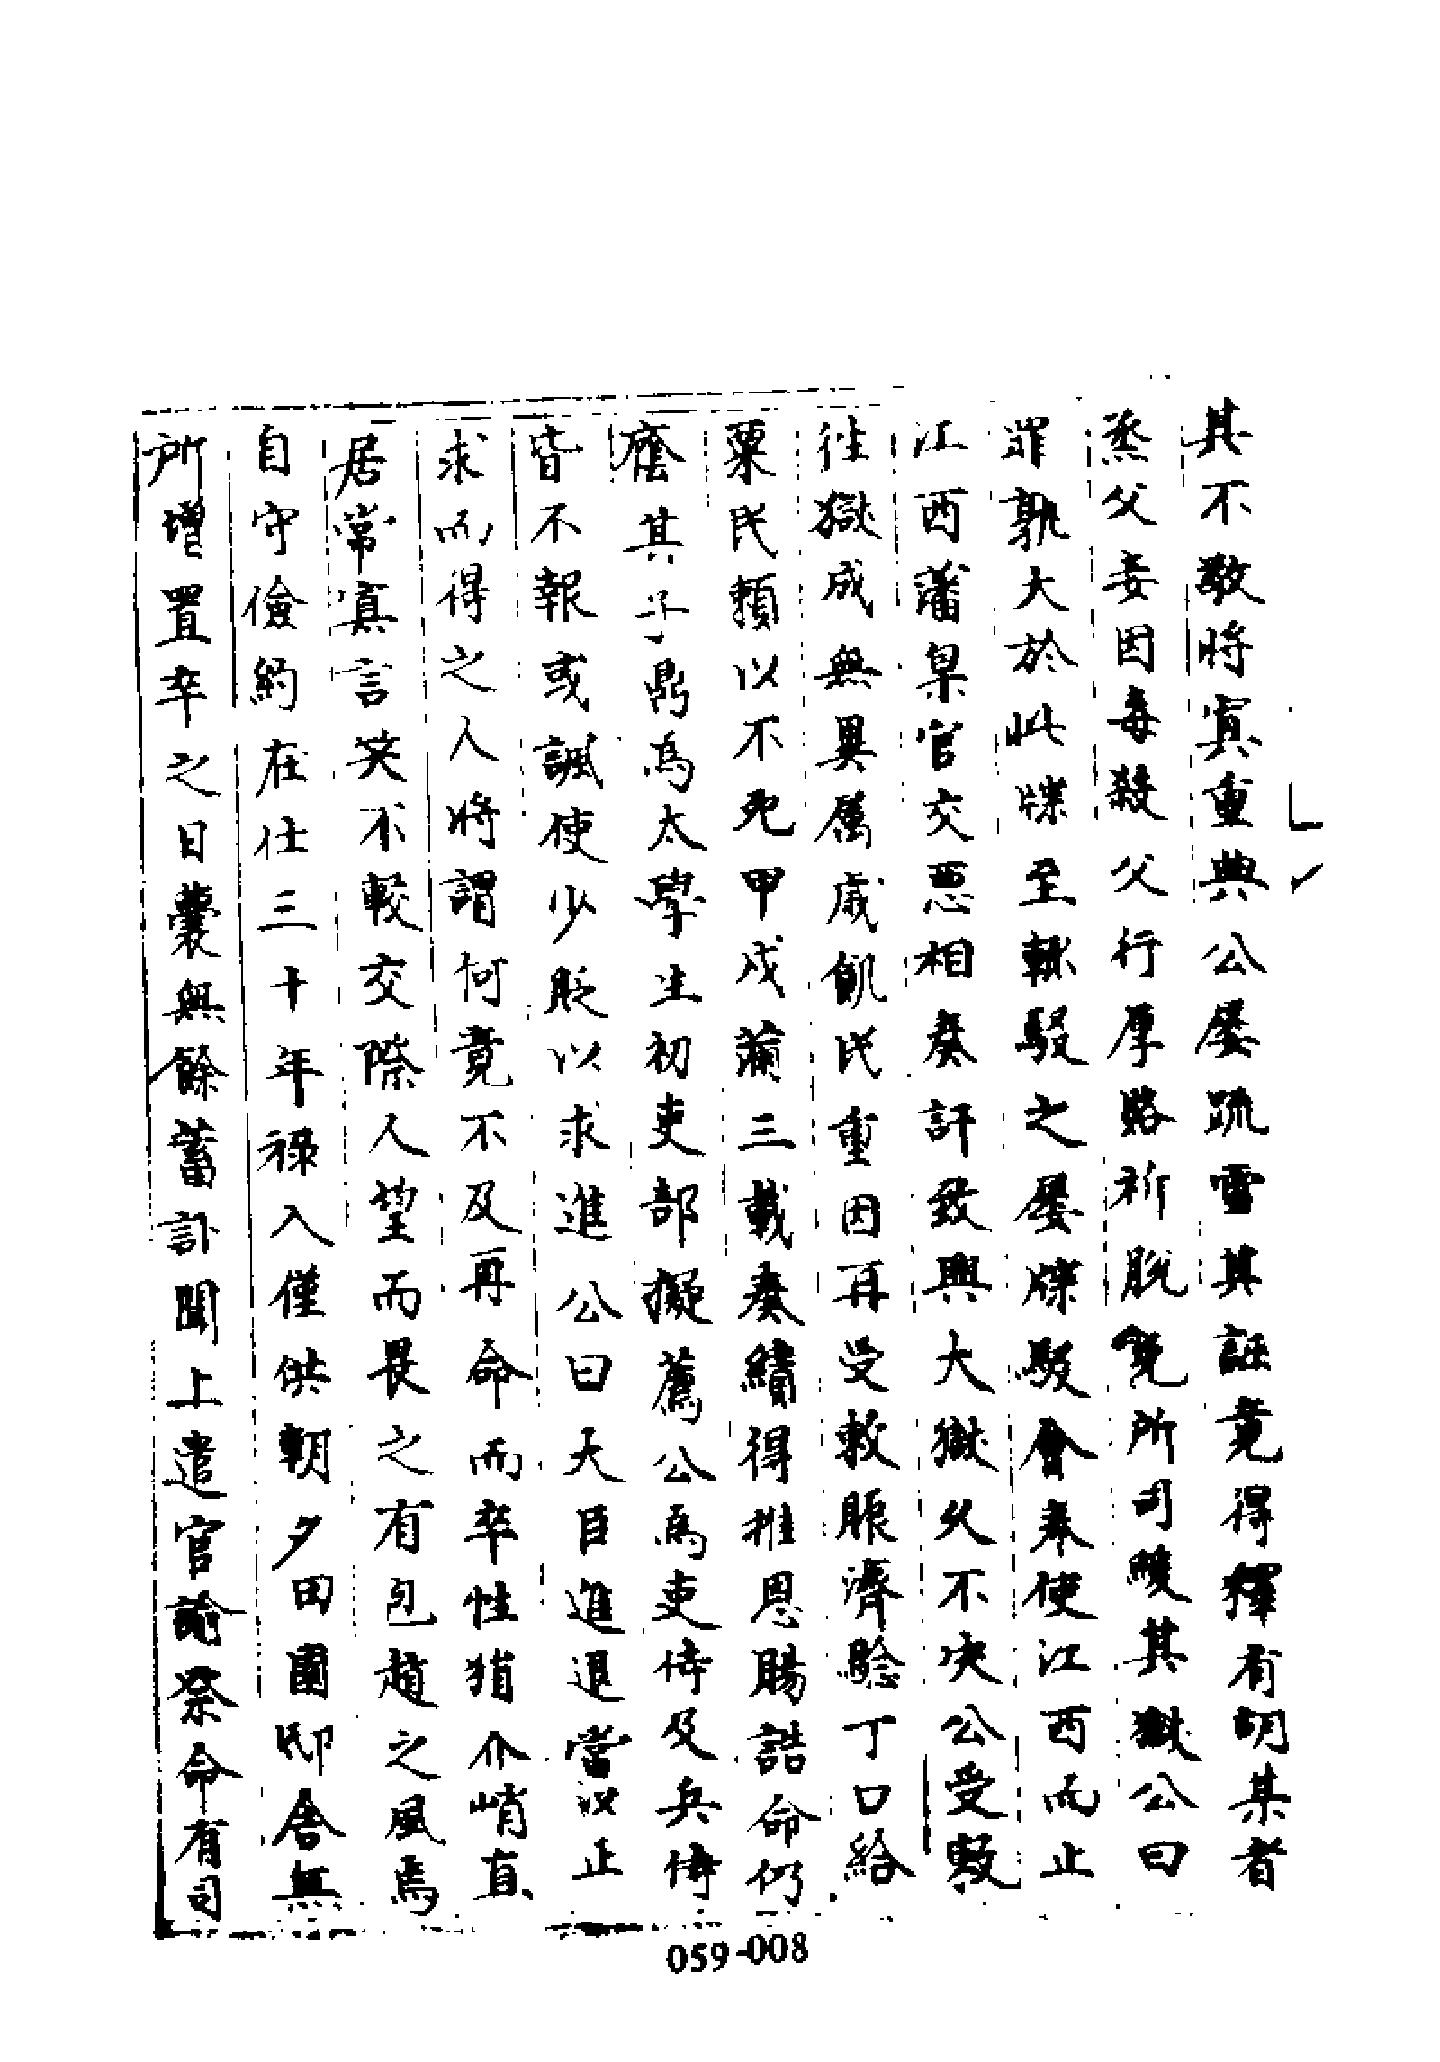 其不敬將寘重典公屡疏雪其誣竟得釋有胡某者
烝父妾因毒殺父行厚賂祈脱免所司睃其獄公曰
罪孰大於此牒至輒駁之屡牒駁會奉使江西而止
江西藩臬官交惡相奏訐致興大獄久不决公受敕
徃獄成無異属歲飢民重因再受敕賑濟驗丁口給
粟民賴以不死甲戌滿三載奏績得推恩賜誥命仍
廕其子鼎為太學生初吏部擬薦公為吏侍及兵侍
皆不報或諷使少貶以求進公曰大臣進退當以正
求而得之人將謂何竟不及再命而卒性狷介峭直
居常寘言笑不較交際人望而畏之有包趙之風焉
自守儉約在仕三十年祿入僅供朝夕田園邸舍無
所增置卒之日囊無餘蓄訃聞上遣官諭祭命有司
059-008